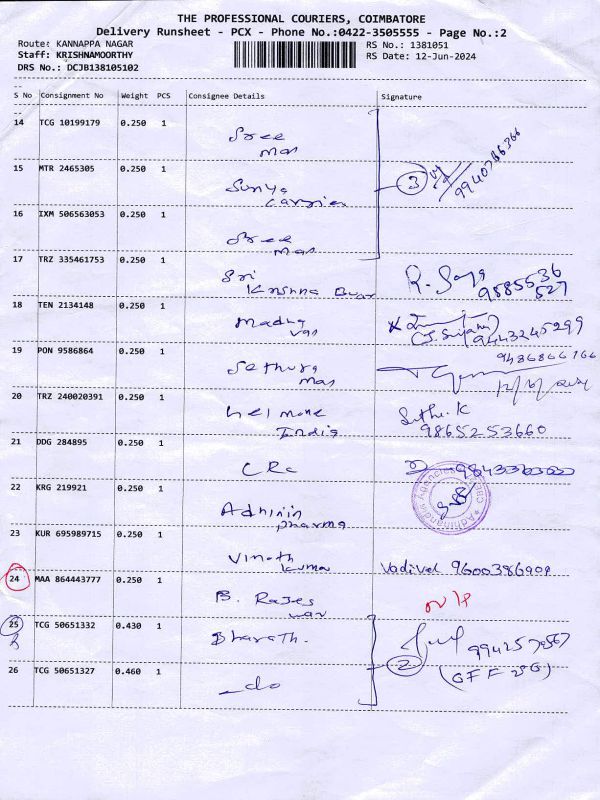 THE PROFESSIONAL COURIERS, COIMBATORE
Delivery Runsheet - PCX - Phone No.:0422-3505555 - Page No.:2
Route: KANNAPPA NAGAR RS No.: 1381051
Staff: KRISHNAMOORTHY RS Date: 12-Jun-2024
DRS No.: DCJB138105102
S No Consignment No Weight PCS Consignee Details Signature
14 TCG 10199179 0.250 1
Sree
mas
15 MTR 2465305 0.250 1
Surya
3
16 IXM 506563053 0.250 1
Sree
mas
17 TRZ 335461753 0.250 1
Sri R.
Krishna 9585536
527
18 TEN 2134148 0.250 1
Madhu
vas 9443245299
19 PON 9586864 0.250 1
Sethura
mas
20 TRZ 240020391 0.250 1
hel mone Suthi.K
India 9865253660
21 DDG 284895 0.250 1
CRC
22 KRG 219921 0.250 1
Adhinin
pharma
23 KUR 695989715 0.250 1
Vinoth
kuma Vadivel 9600386909
24 MAA 864443777 0.250 1
B. Rajes
25 TCG 50651332 0.430 1
Bharath.
26 TCG 50651327 0.460 1 2
-do